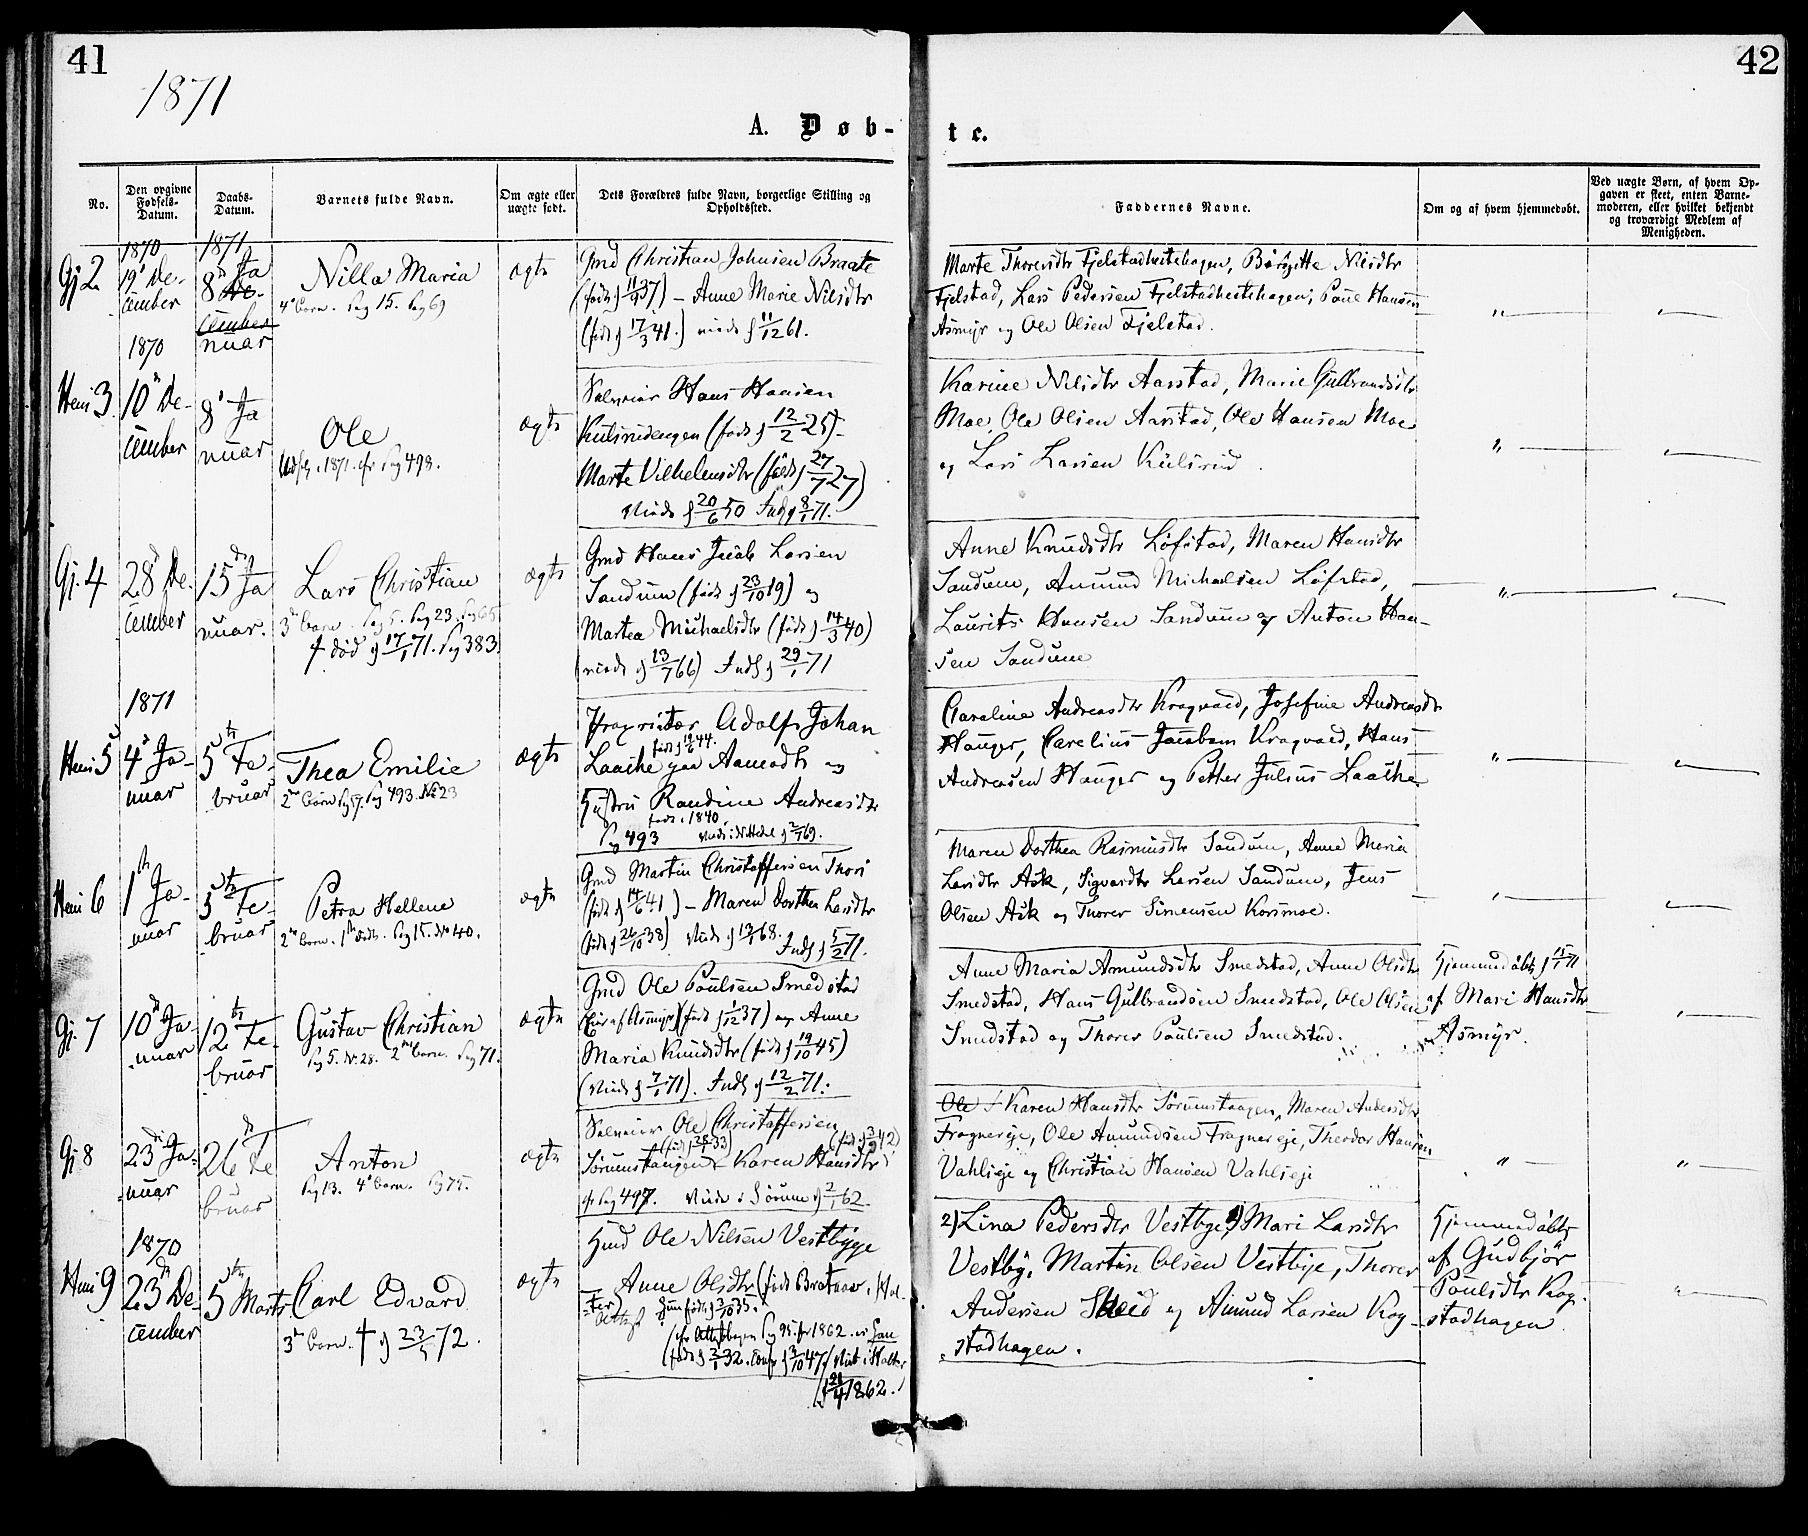 41
42
1871
A. Døb-
te.
No.
Den opgivne Fødsels-Datum.
Daabs-Datum.
Barnets fulde Navn.
Om ægte eller uægte født.
Dets Forældres fulde Navn, borgerlige Stilling og Opholdssted.
Faddernes Navne.
Om og af hvem hjemmedøbt.
Ved uægte Børn, af hvem Opgaven er skeet, enten Barnemoderen, eller hvilket bekjendt og troværdigt Medlem af Menigheden.
1870
1871
Gj 2
19 De-
cember
8 Ja
nuar
Nilla Maria
4 Barn. Pag 15. Pag 69
ægte
Gmd Christian Johnsen Braate
(født d 11/9 37) – Anne Marie Nilsdtr
(født d 17/3 41.) viede d 11/12 61.
Marte Thorersdtr Fjelstadhestehagen, Birgitte Nilsdtr
Fjelstad, Lars Pedersen Fjelstadhestehagen, Paul Hansen
Asmyr og Ole Olsen Fjelstad.
1870
Hem 3
10 De-
cember
8 Ja
nuar
Ole
1871. cfr Pag 498.
ægte
Selveier Hans Hansen
Kulsrudengen (født d 12/2 25) –
Marte Vilhelmsdtr (født d 27/7 27)
Viede d 20/6 50 Indf d 8/1 71.
Karine Nilsdtr Aarstad, Marie Gulbrandsdtr
Moe, Ole Olsen Aarstad, Ole Hansen Moe
og Lars Larsen Kulsrud.
Gj. 4
28 De-
cember
15 Ja
nuar.
Lars Christian
3 Barn. Pag 5. Pag 23. Pag 65
† død d 17/1 71. Pag 383.
ægte
Gmd Hans Jacob Larsen
Sandum (født d 23/10 19) og
Martea Michaelsdtr (født d 14/3 40)
(viede d 13/7 66) Indf d 29/1 71
Anne Knudsdtr Løfstad, Maren Hansdtr
Sandum, Amund Michaelsen Løfstad,
Laurits Hansen Sandum og Anton Han-
sen Sandum
1871
Hem 5
4 Ja-
nuar
5 Fe-
bruar
Thea Emilie
2 Barn Pag 17. Pag 493. No 23
ægte
Proprietær Adolf Johan
Laache paa Aamodt og
Hustru Randine Andreasdtr
født 1840.
Pag 493
Caroline Andreasdtr Kragvaed, Josefine Andreasdtr
Hauger, Carelius Jacobsen Kragvaed, Hans
Andreasen Hauger og Petter Julius Laache
Hem 6
1 Ja-
nuar
5 Fe-
bruar
Petra Hellene
2 Barn. Pag 15. No 40.
ægte
Gmd Martin Christoffersen Thori
(født d 14/6 41) – Maren Dorthea Larsdtr
(født d 26/10 38) Viede d 13/1 68. Indf d 5/2 71.
Maren Dorthea Rasmusdtr Sandum, Anne Maria
Larsdtr Ask, Sigvardt Larsen Sandum, Jens
Olsen Ask og Thorer Simensen Korsmoe.
Gj. 7
10 Ja-
nuar
12 Fe-
bruar
Gustav Christian
Pag 5. No 28. 2 Barn. Pag 71.
ægte
Gmd Ole Poulsen Smedstad
(født d 1/12 37) og Anne
Maria Knudsdtr (født d 19/10 45)
(Viede d 7/1 71). Indf d 12/2 71.
Anne Maria Amundsdtr Smedstad, Anne Olsdtr
Smedstad, Hans Gulbrandsen Smedstad, Ole Olsen
Smedstad og Thorer Poulsen Smedstad.
Hjemmedøbt d 15/1 71
af Mari Hansdtr
Asmyr.
Gj 8
23 Ja-
nuar
26 Fe
bruar
Anton
Pag 13. 4 Barn. Pag 75.
ægte
Selveier Ole Christoffersen
Sørumstangen & Karen Hansdtr
cfr Pag 497. Viede i Sørum d 2/1 62.
Ole + Karen Hansdtr Sørumstangen, Maren Andersdtr
Fragnereje, Ole Amundsen Fragnereje, Theodor Hansen
Vahlseje og Christian Hansen Vahlseje
1870
Hem 9
23 De-
cember
5 Marts
Carl Edvard
3 Barn. † d 23/5 72.
ægte
Hmd Ole Nilsen Vestbye
Anne Olsdtr (født Brataas i Hol-
ter
Attest
(cfr Attestbogen Pag 95. for 1862.
(født d 3/1 32. Conf d 3/10 47) Viet i Holter
d 21/4 1862.)
2) Lina Pedersdtr Vestbye 1) Mari Larsdtr
Vestby, Martin Olsen Vestbye, Thorer
Andersen Skeid og Amund Larsen Kog-
stadhagen.
Hjemmedøbt
af Gudbjør
Poulsdtr Kog-
stadhagen